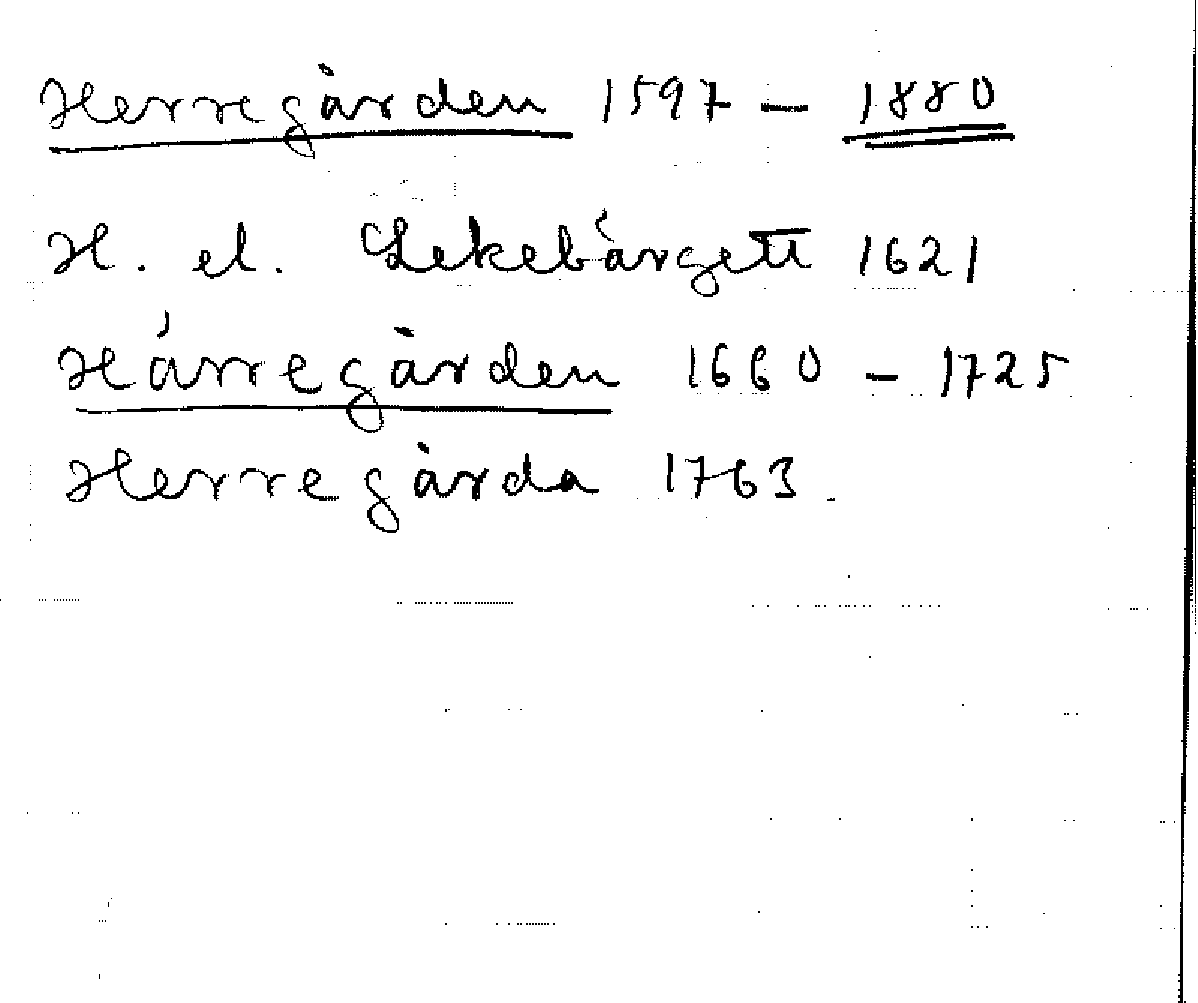 Herregården 1597 – 1880
H. el. Lekebärgett 1621
Härregården 1660 – 1725
Herregårda 1763.